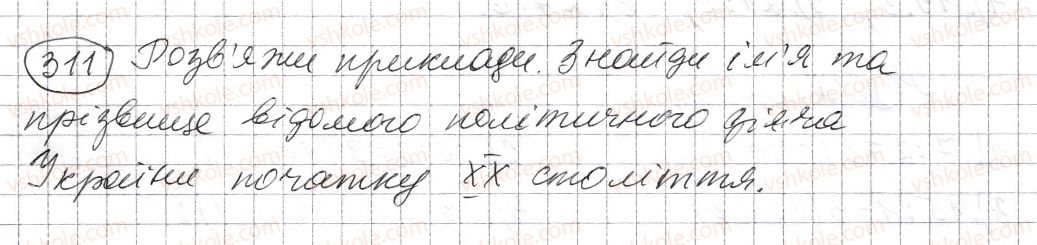 311 Розв'яжи приклади. Знайди ім'я та
прізвище відомого політичного діяча
України початку XX століття.